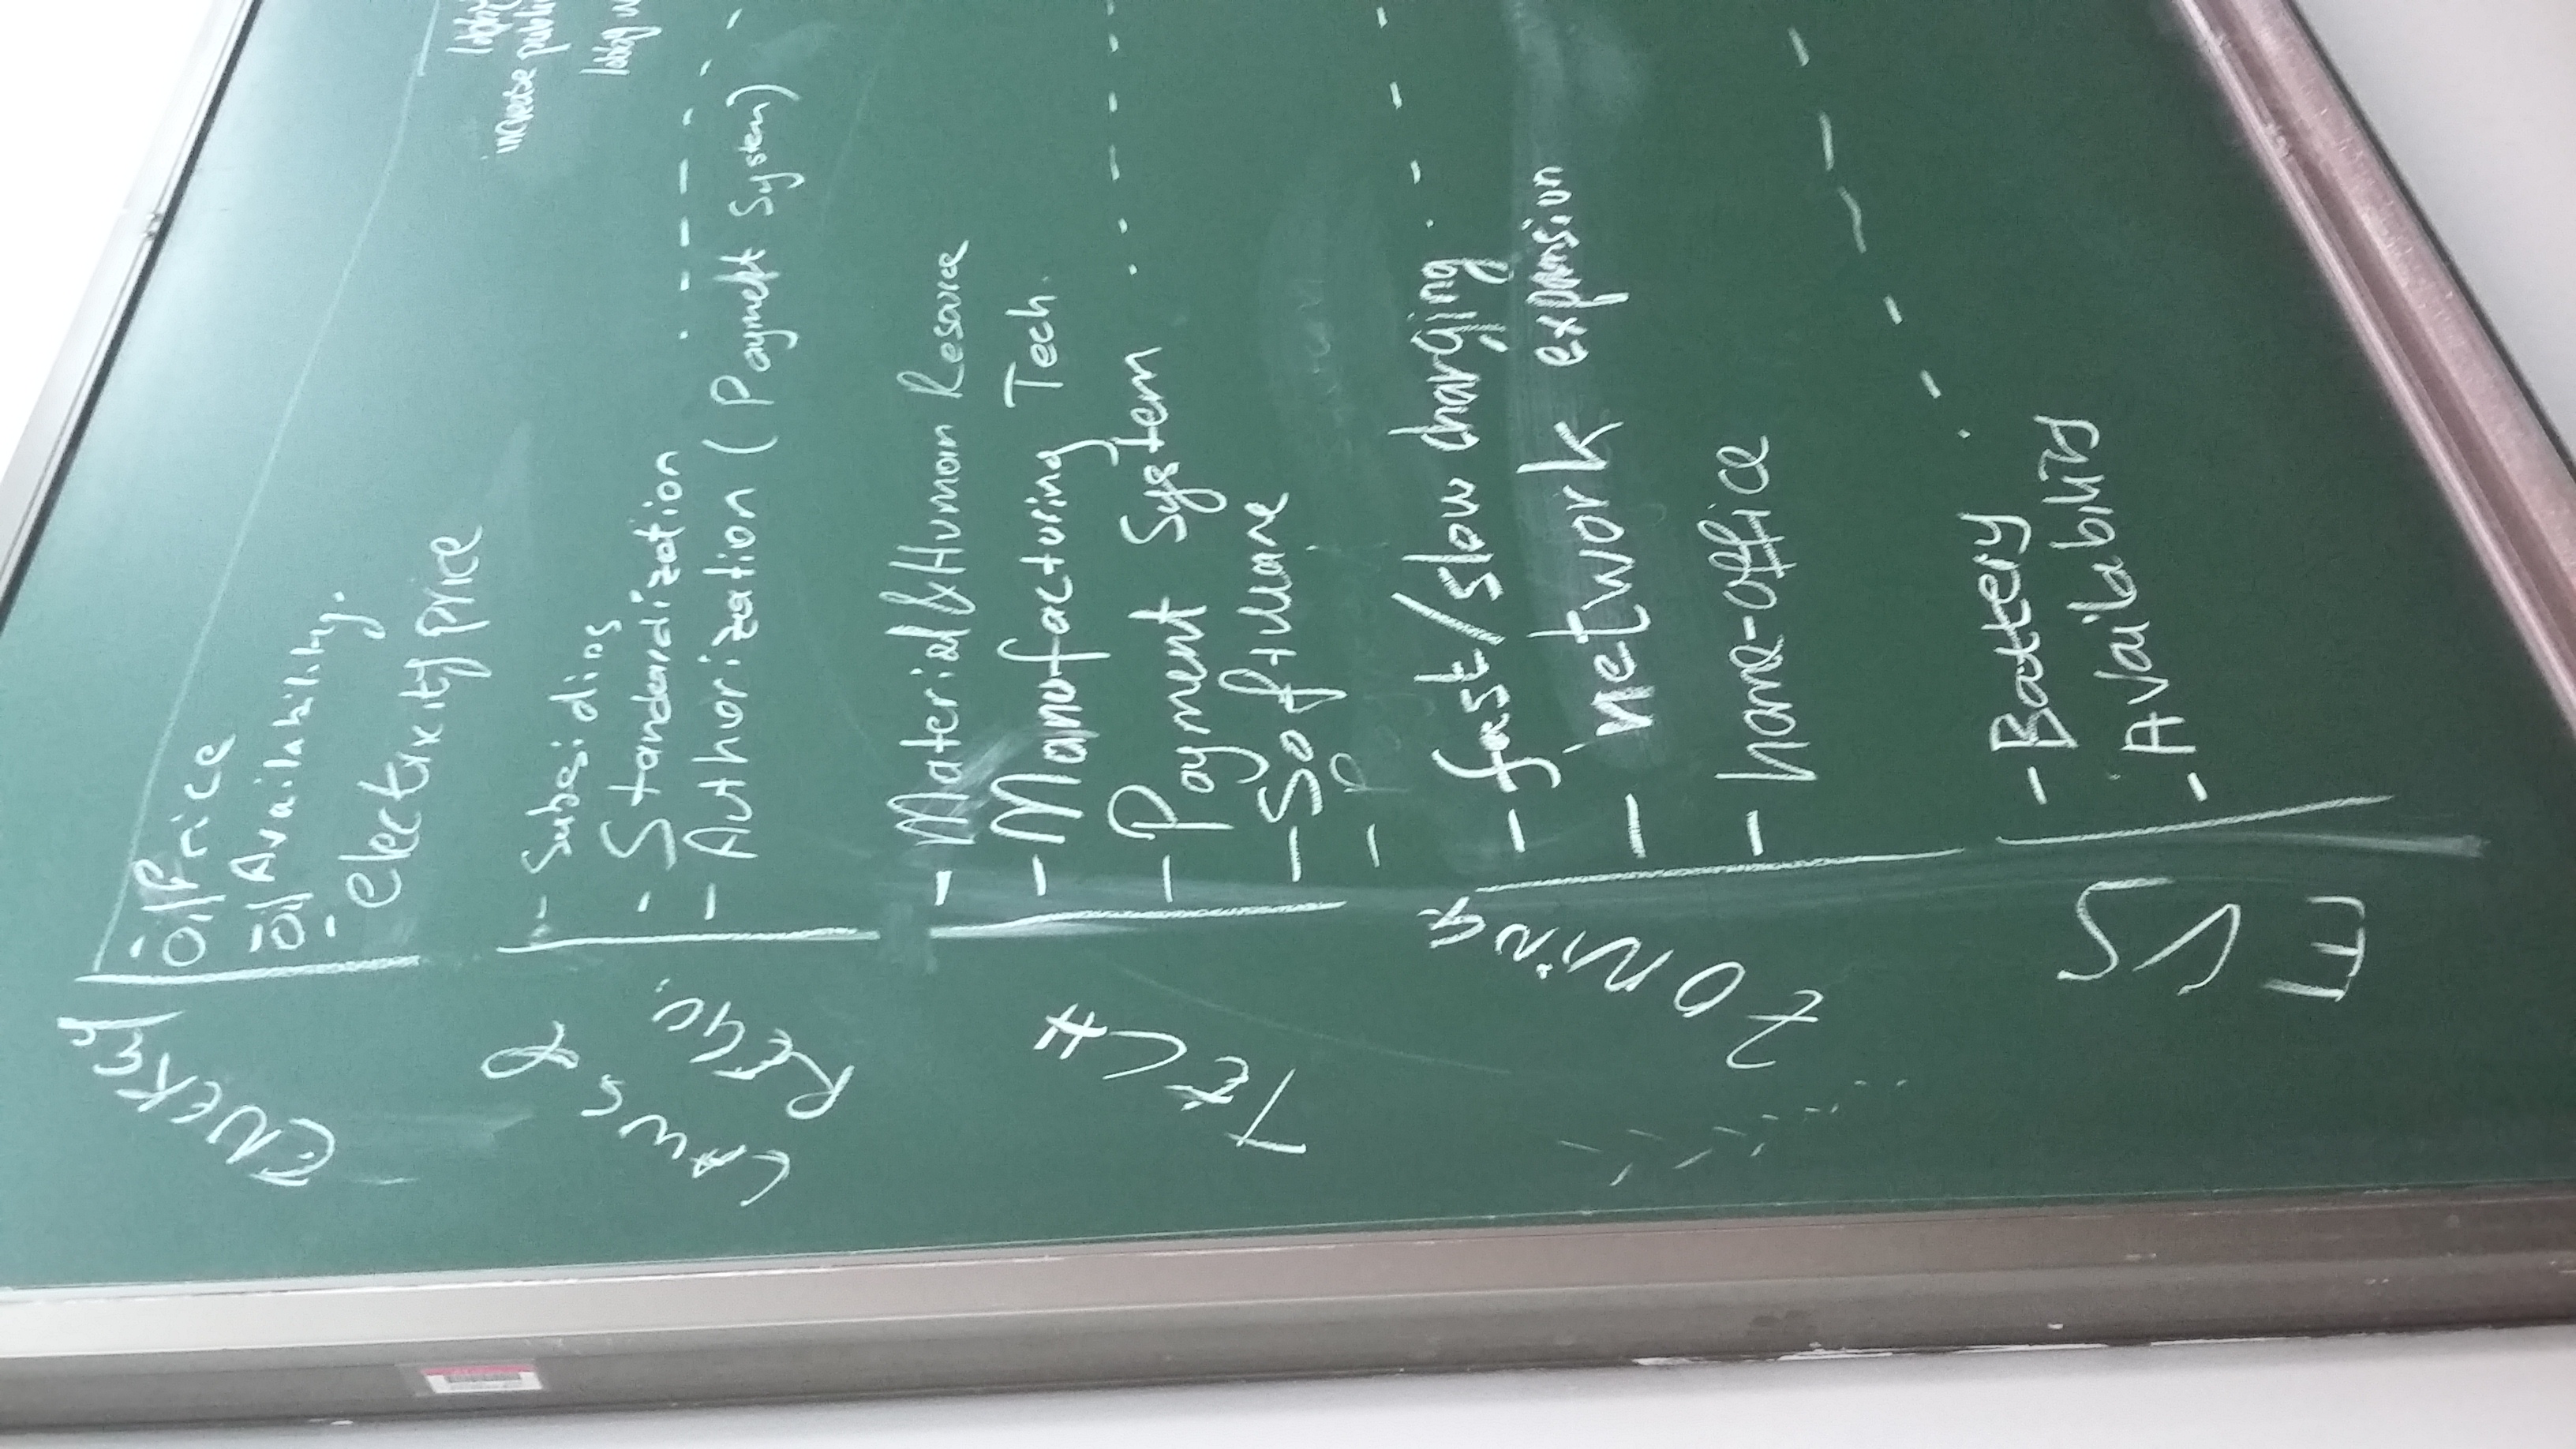 ENERGY
- Oil Price
- Oil Availability.
- electricity price
LAWS &
REGU.
- Subsidies
- Standardization
- Authorization (Payment System)
increase
lobby
TECH
- Material & Human Resource
- Manufacturing Tech.
- Payment System
- Software
- P
ZONING
- fast/slow charging
- network expansion
- home-office
EVS
- Battery
- Availability